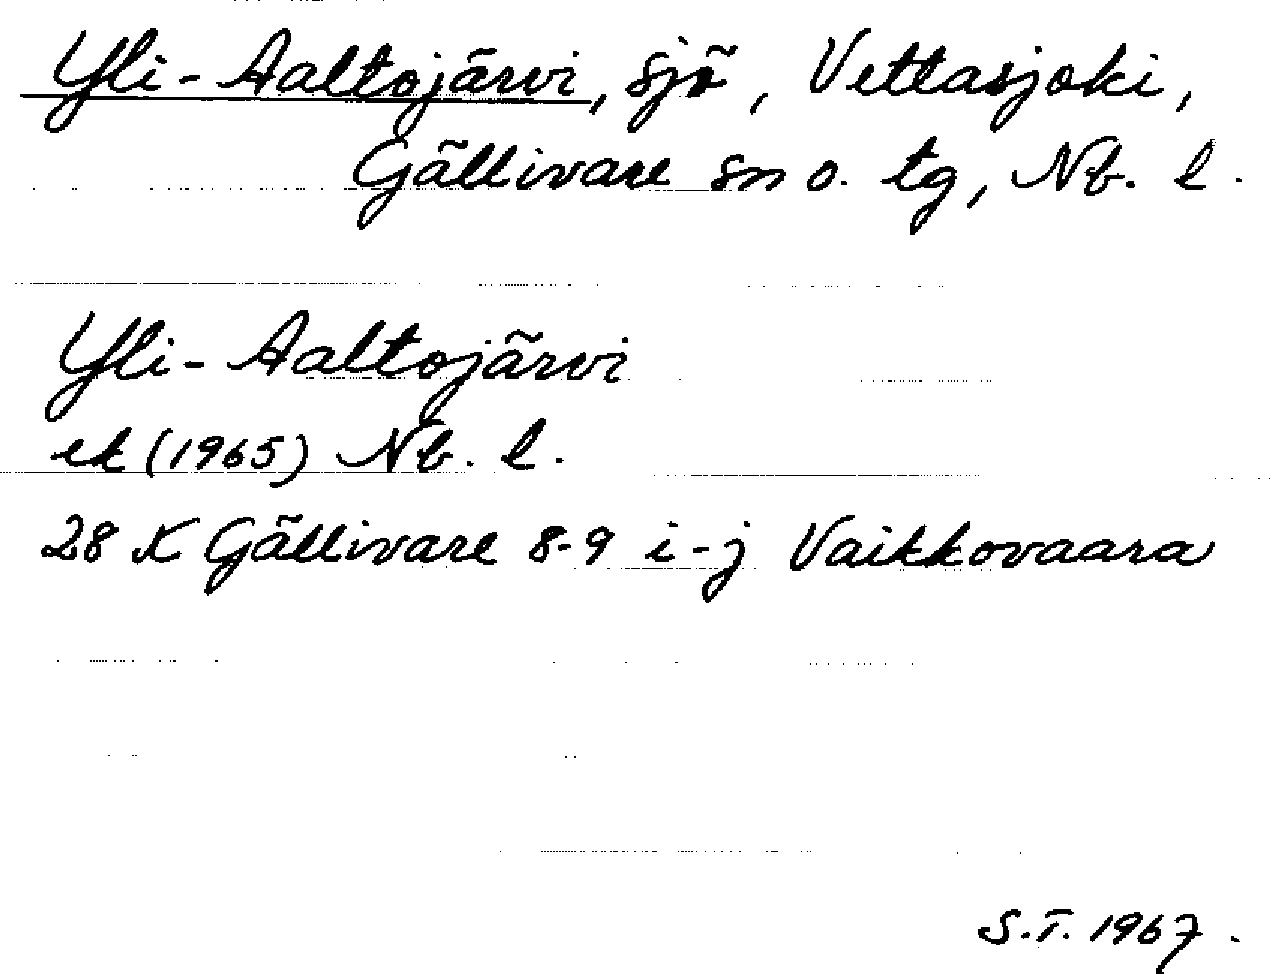 Yli-Aaltojärvi, sjö, Vettasjoki,
Gällivare sn o. tg, Nb. l.
Yli-Aaltojärvi
ek (1965) Nb. l.
28 K Gällivare 8-9 i-j Vaikkovaara
S.T. 1967.